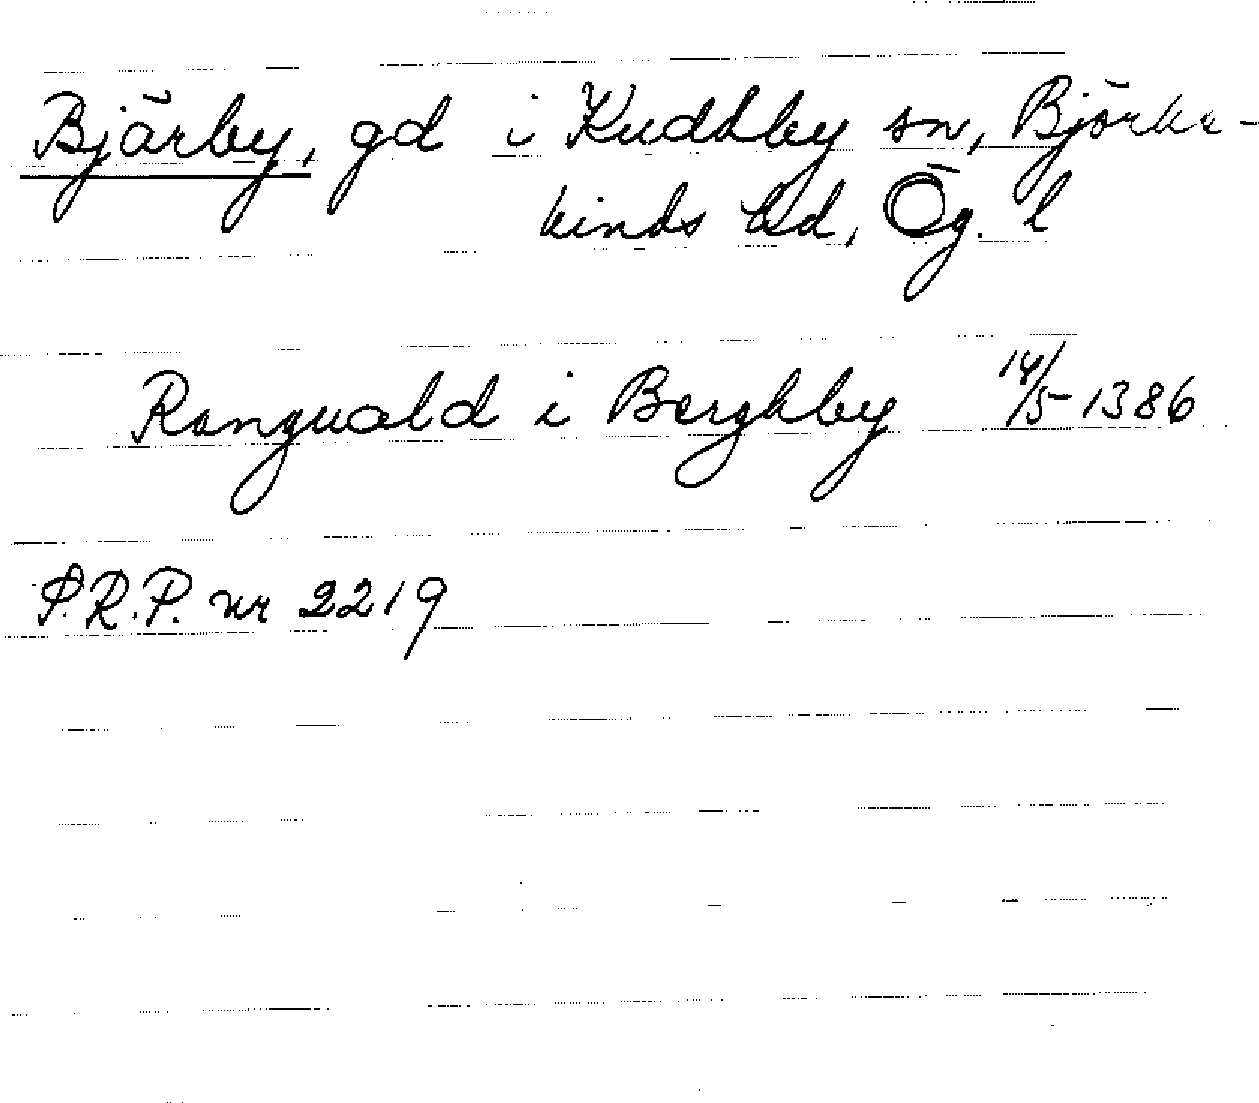 Bjärby, gd i Kuddby sn, Björke-
kinds hd, Ög. l
Ranguald i Berghby 14/5 1386
S.R.P. nr 2219